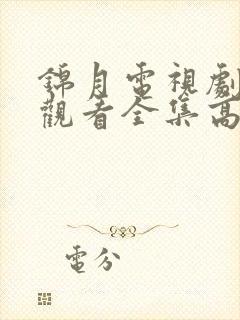 錦月電視劇
觀看全集高
電分